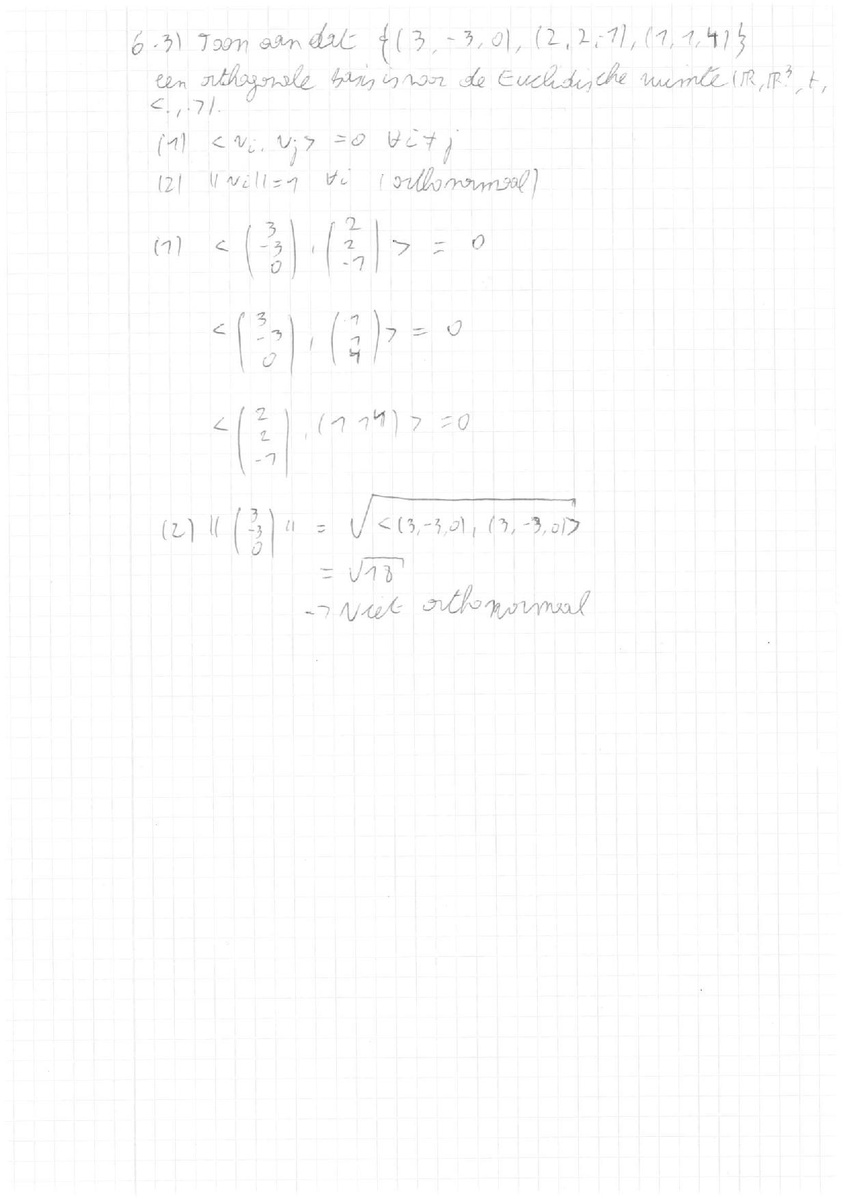 6.3) Toon aan dat {(3, -3, 0), (2, 2, -1), (1, 1, 4)}
een orthogonale basis is voor de Euclidische ruimte (ℝ, ℝ³, +,
<.,.>).
(1) <vi, vj> = 0 ∀i ≠ j
(2) ||vi|| = 1 ∀i (orthonormaal)
(1) < (3 -3 0), (2 2 -1) > = 0
< (3 -3 0), (1 1 4) > = 0
< (2 2 -1), (1 1 4) > = 0
(2) || (3 -3 0) || = √<(3, -3, 0), (3, -3, 0)>
= √18
→ Niet orthonormaal